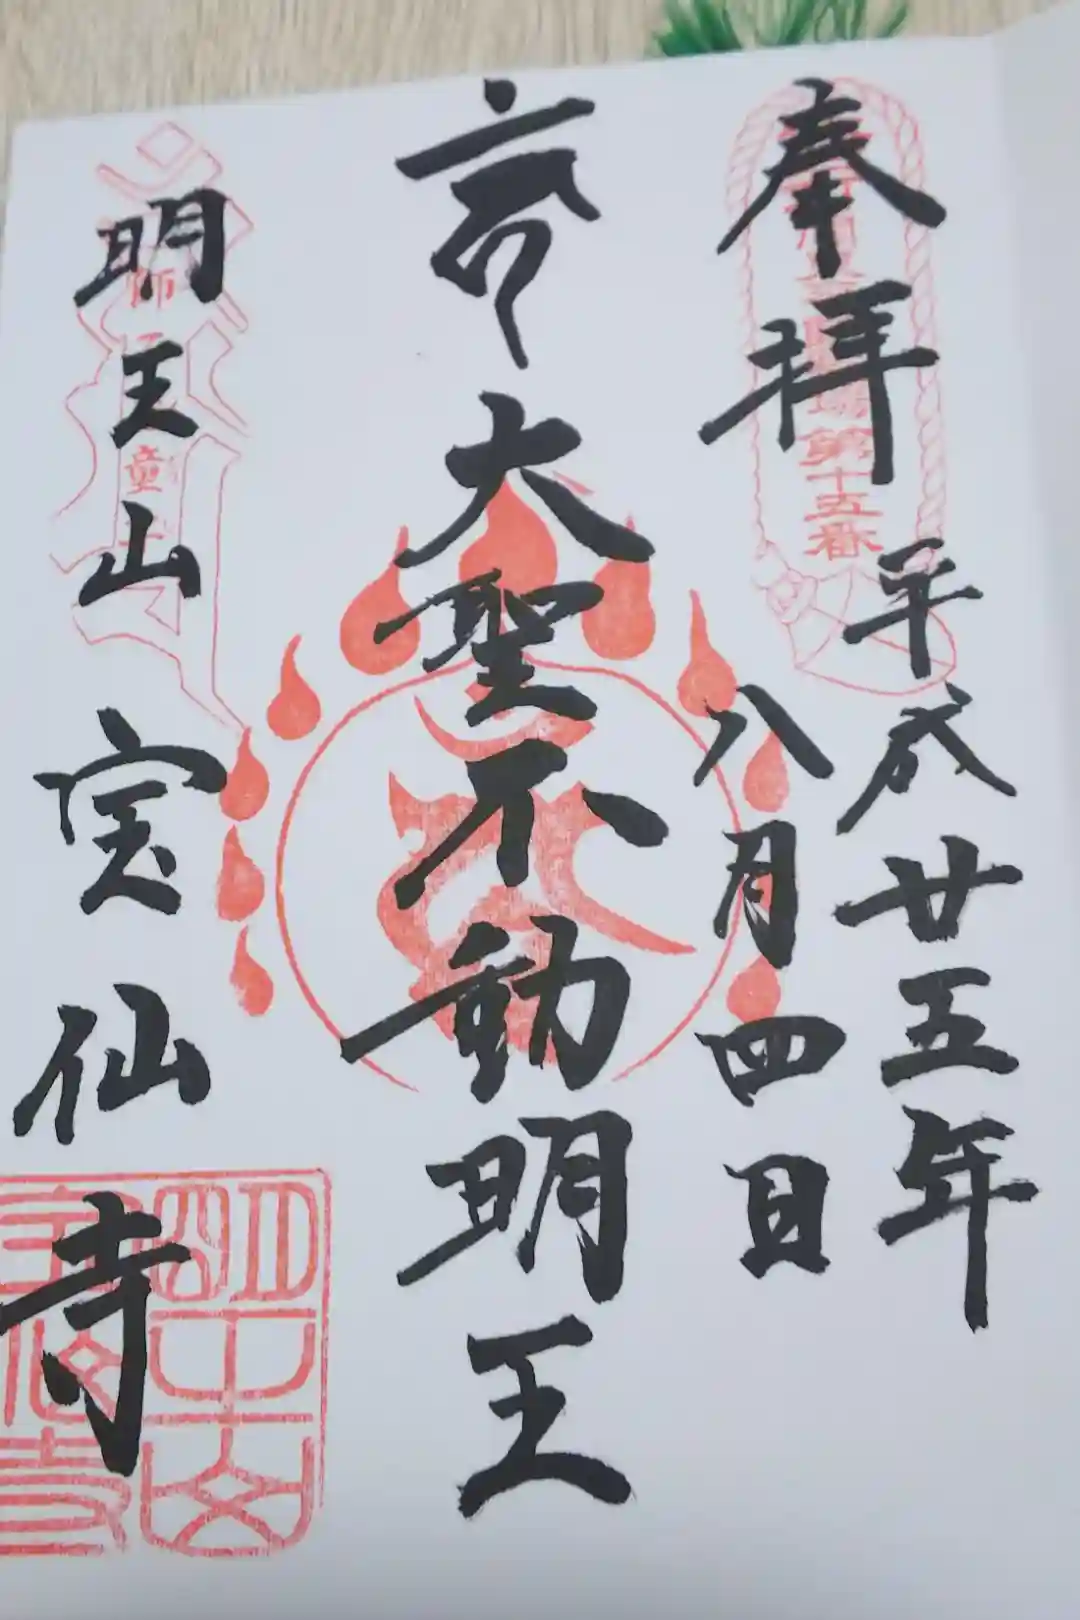 奉拝
平成廿五年
八月四日
大聖不動明王
明王山 宝仙寺
第十五番
童
明王山
宝仙寺